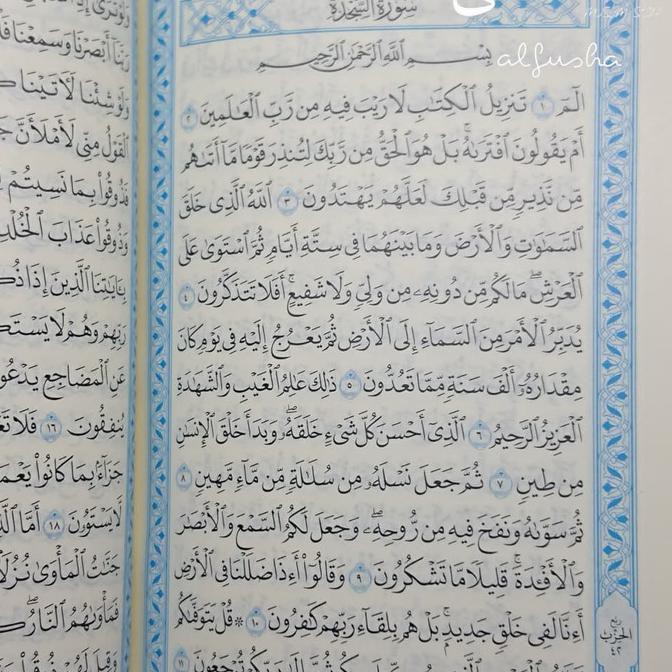 سُورَةُ السَّجْدَةِ
alfusha
بِسْمِ اللَّهِ الرَّحْمَٰنِ الرَّحِيمِ
الٓمٓ ١ تَنزِيلُ الْكِتَابِ لَا رَيْبَ فِيهِ مِن رَّبِّ الْعَالَمِينَ ٢
أَمْ يَقُولُونَ افْتَرَاهُ ۚ بَلْ هُوَ الْحَقُّ مِن رَّبِّكَ لِتُنذِرَ قَوْمًا مَّا أَتَاهُم
مِّن نَّذِيرٍ مِّن قَبْلِكَ لَعَلَّهُمْ يَهْتَدُونَ ٣ اللَّهُ الَّذِي خَلَقَ
السَّمَاوَاتِ وَالْأَرْضَ وَمَا بَيْنَهُمَا فِي سِتَّةِ أَيَّامٍ ثُمَّ اسْتَوَىٰ عَلَى
الْعَرْشِ ۖ مَا لَكُم مِّن دُونِهِ مِن وَلِيٍّ وَلَا شَفِيعٍ ۚ أَفَلَا تَتَذَكَّرُونَ ٤
يُدَبِّرُ الْأَمْرَ مِنَ السَّمَاءِ إِلَى الْأَرْضِ ثُمَّ يَعْرُجُ إِلَيْهِ فِي يَوْمٍ كَانَ
مِقْدَارُهُ أَلْفَ سَنَةٍ مِّمَّا تَعُدُّونَ ٥ ذَٰلِكَ عَالِمُ الْغَيْبِ وَالشَّهَادَةِ
الْعَزِيزُ الرَّحِيمُ ٦ الَّذِي أَحْسَنَ كُلَّ شَيْءٍ خَلَقَهُ ۖ وَبَدَأَ خَلْقَ الْإِنسَانِ
مِن طِينٍ ٧ ثُمَّ جَعَلَ نَسْلَهُ مِن سُلَالَةٍ مِّن مَّاءٍ مَّهِينٍ ٨
ثُمَّ سَوَّاهُ وَنَفَخَ فِيهِ مِن رُّوحِهِ ۖ وَجَعَلَ لَكُمُ السَّمْعَ وَالْأَبْصَارَ
وَالْأَفْئِدَةَ ۚ قَلِيلًا مَّا تَشْكُرُونَ ٩ وَقَالُوا أَءِذَا ضَلَلْنَا فِي الْأَرْضِ
أَءِنَّا لَفِي خَلْقٍ جَدِيدٍ ۚ بَلْ هُم بِلِقَاءِ رَبِّهِمْ كَافِرُونَ ١٠ ۞ قُلْ يَتَوَفَّاكُم
رَبِّكُمْ تُرْجَعُونَ ١١
ربع
الحزب
٤٢
رَبَّنَا أَبْصَرْنَا وَسَمِعْنَا
وَلَوْ شِئْنَا لَآتَيْنَا
الْقَوْلُ مِنِّي لَأَمْلَأَنَّ
فَذُوقُوا بِمَا نَسِيتُمْ
وَذُوقُوا عَذَابَ الْخُلْدِ
بِآيَاتِنَا الَّذِينَ إِذَا
رَبِّهِمْ وَهُمْ لَا
عَنِ الْمَضَاجِعِ يَدْعُونَ
يُنفِقُونَ ١٦ فَلَا
جَزَاءً بِمَا كَانُوا
لَّا يَسْتَوُونَ ١٨ أَمَّا
جَنَّاتُ الْمَأْوَىٰ نُزُلًا
فَمَأْوَاهُمُ النَّارُ
وَقِيلَ لَهُمْ